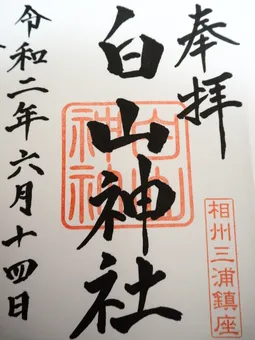 奉拝
白山神社
令和二年六月十四日
相州三浦鎮座